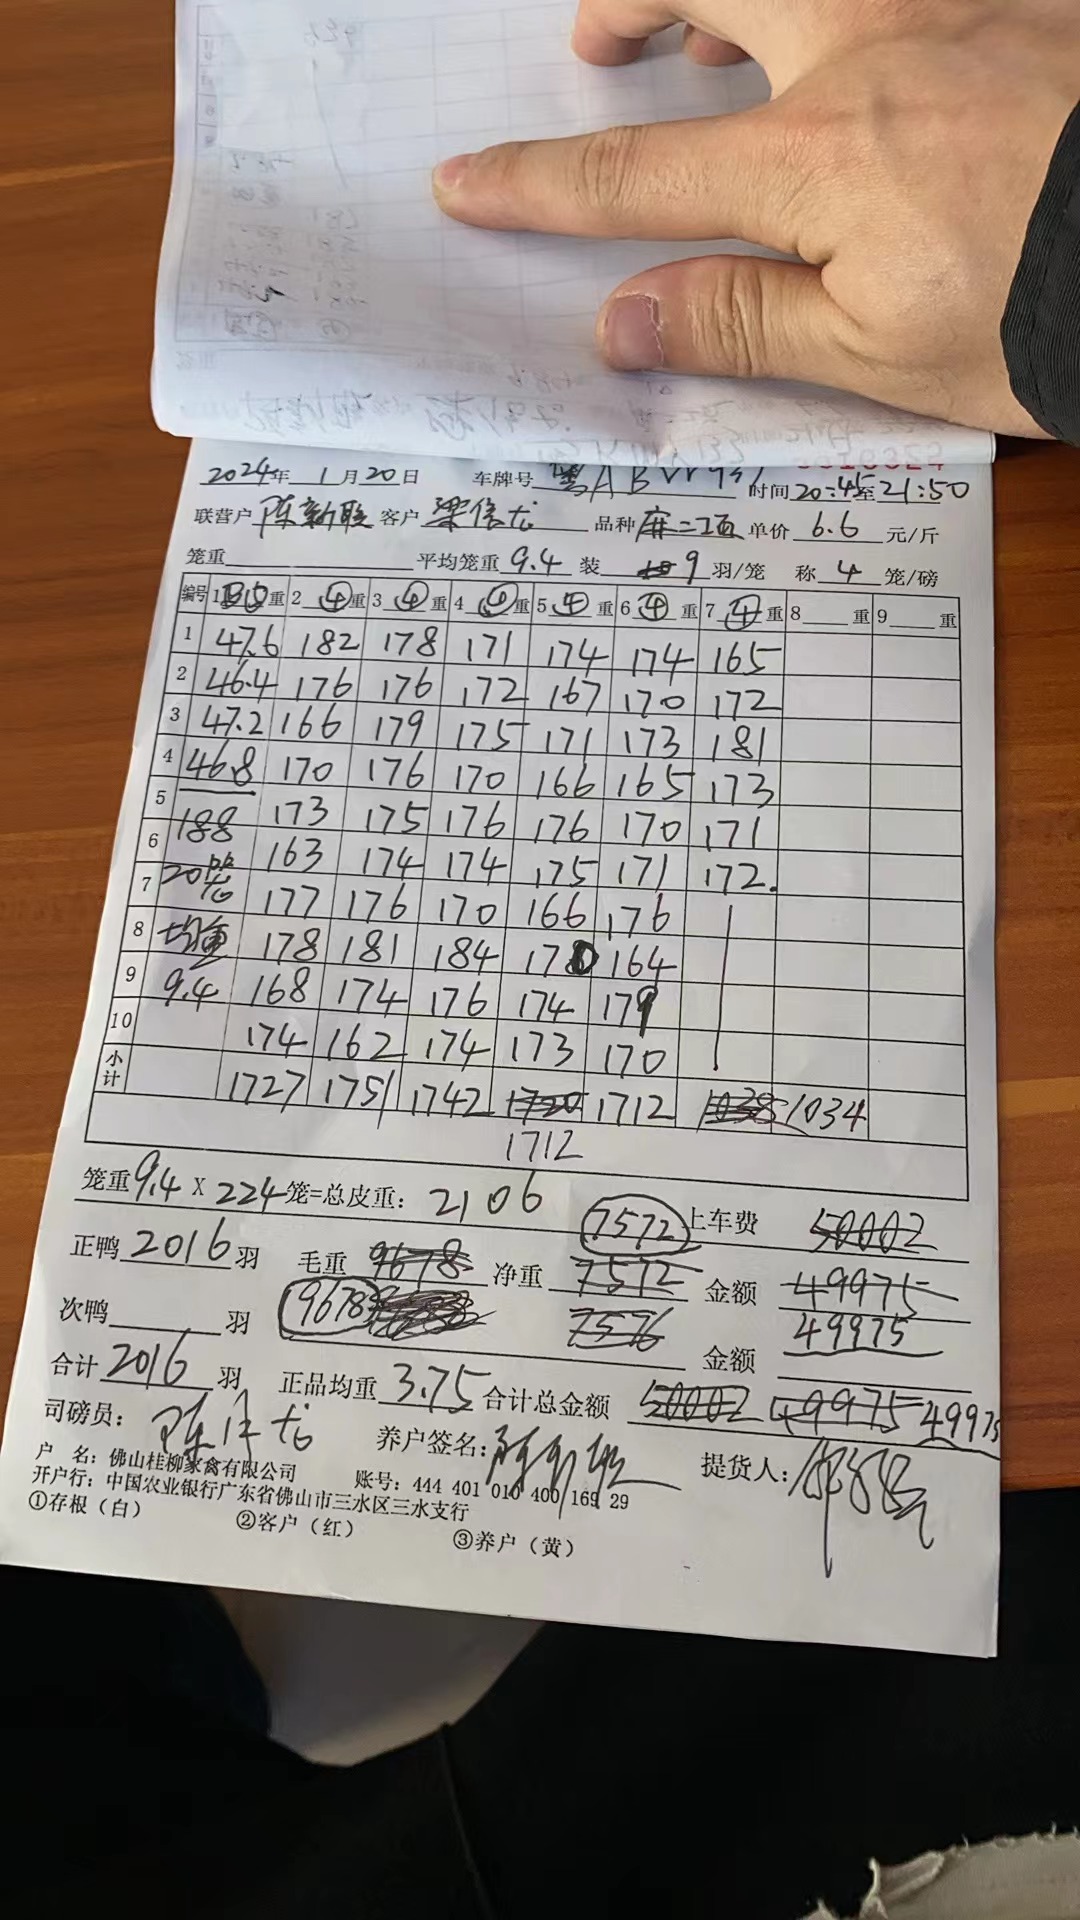 2024年 1月20日 车牌号 粤AB 时间20:45至21:50
联营户 陈新联 客户 梁信龙 品种 麻二项 单价 6.6 元/斤
笼重 平均笼重 9.4 装 9 羽/笼 称 4 笼/磅
编号 1 重 2 ④ 重 3 ④ 重 4 ④ 重 5 ④ 重 6 ④ 重 7 ④ 重 8 重 9 重
1 47.6 182 178 171 174 174 165
2 46.4 176 176 172 167 170 172
3 47.2 166 179 175 171 173 181
4 46.8 170 176 170 166 165 173
5 188 173 175 176 176 170 171
6 20笼 163 174 174 175 171 172.
7 均重 177 176 170 166 176
8 9.4 178 181 184 170 164
9 168 174 176 174 179
10 174 162 174 173 170
小计 1727 1751 1742 1720 1712 1038 1034
1712
笼重9.4 X 224笼=总皮重: 2106 7572 上车费 50002
正鸭 2016 羽 毛重 9678 净重 7572 金额 49975
次鸭 羽 9678 7576 金额 49975
合计 2016 羽 正品均重 3.75 合计总金额 50002 49975 49975
司磅员: 养户签名: 提货人:
户 名: 佛山桂柳家禽有限公司 账号: 444 401 010 400 169 29
开户行: 中国农业银行广东省佛山市三水区三水支行
①存根（白） ②客户（红） ③养户（黄）